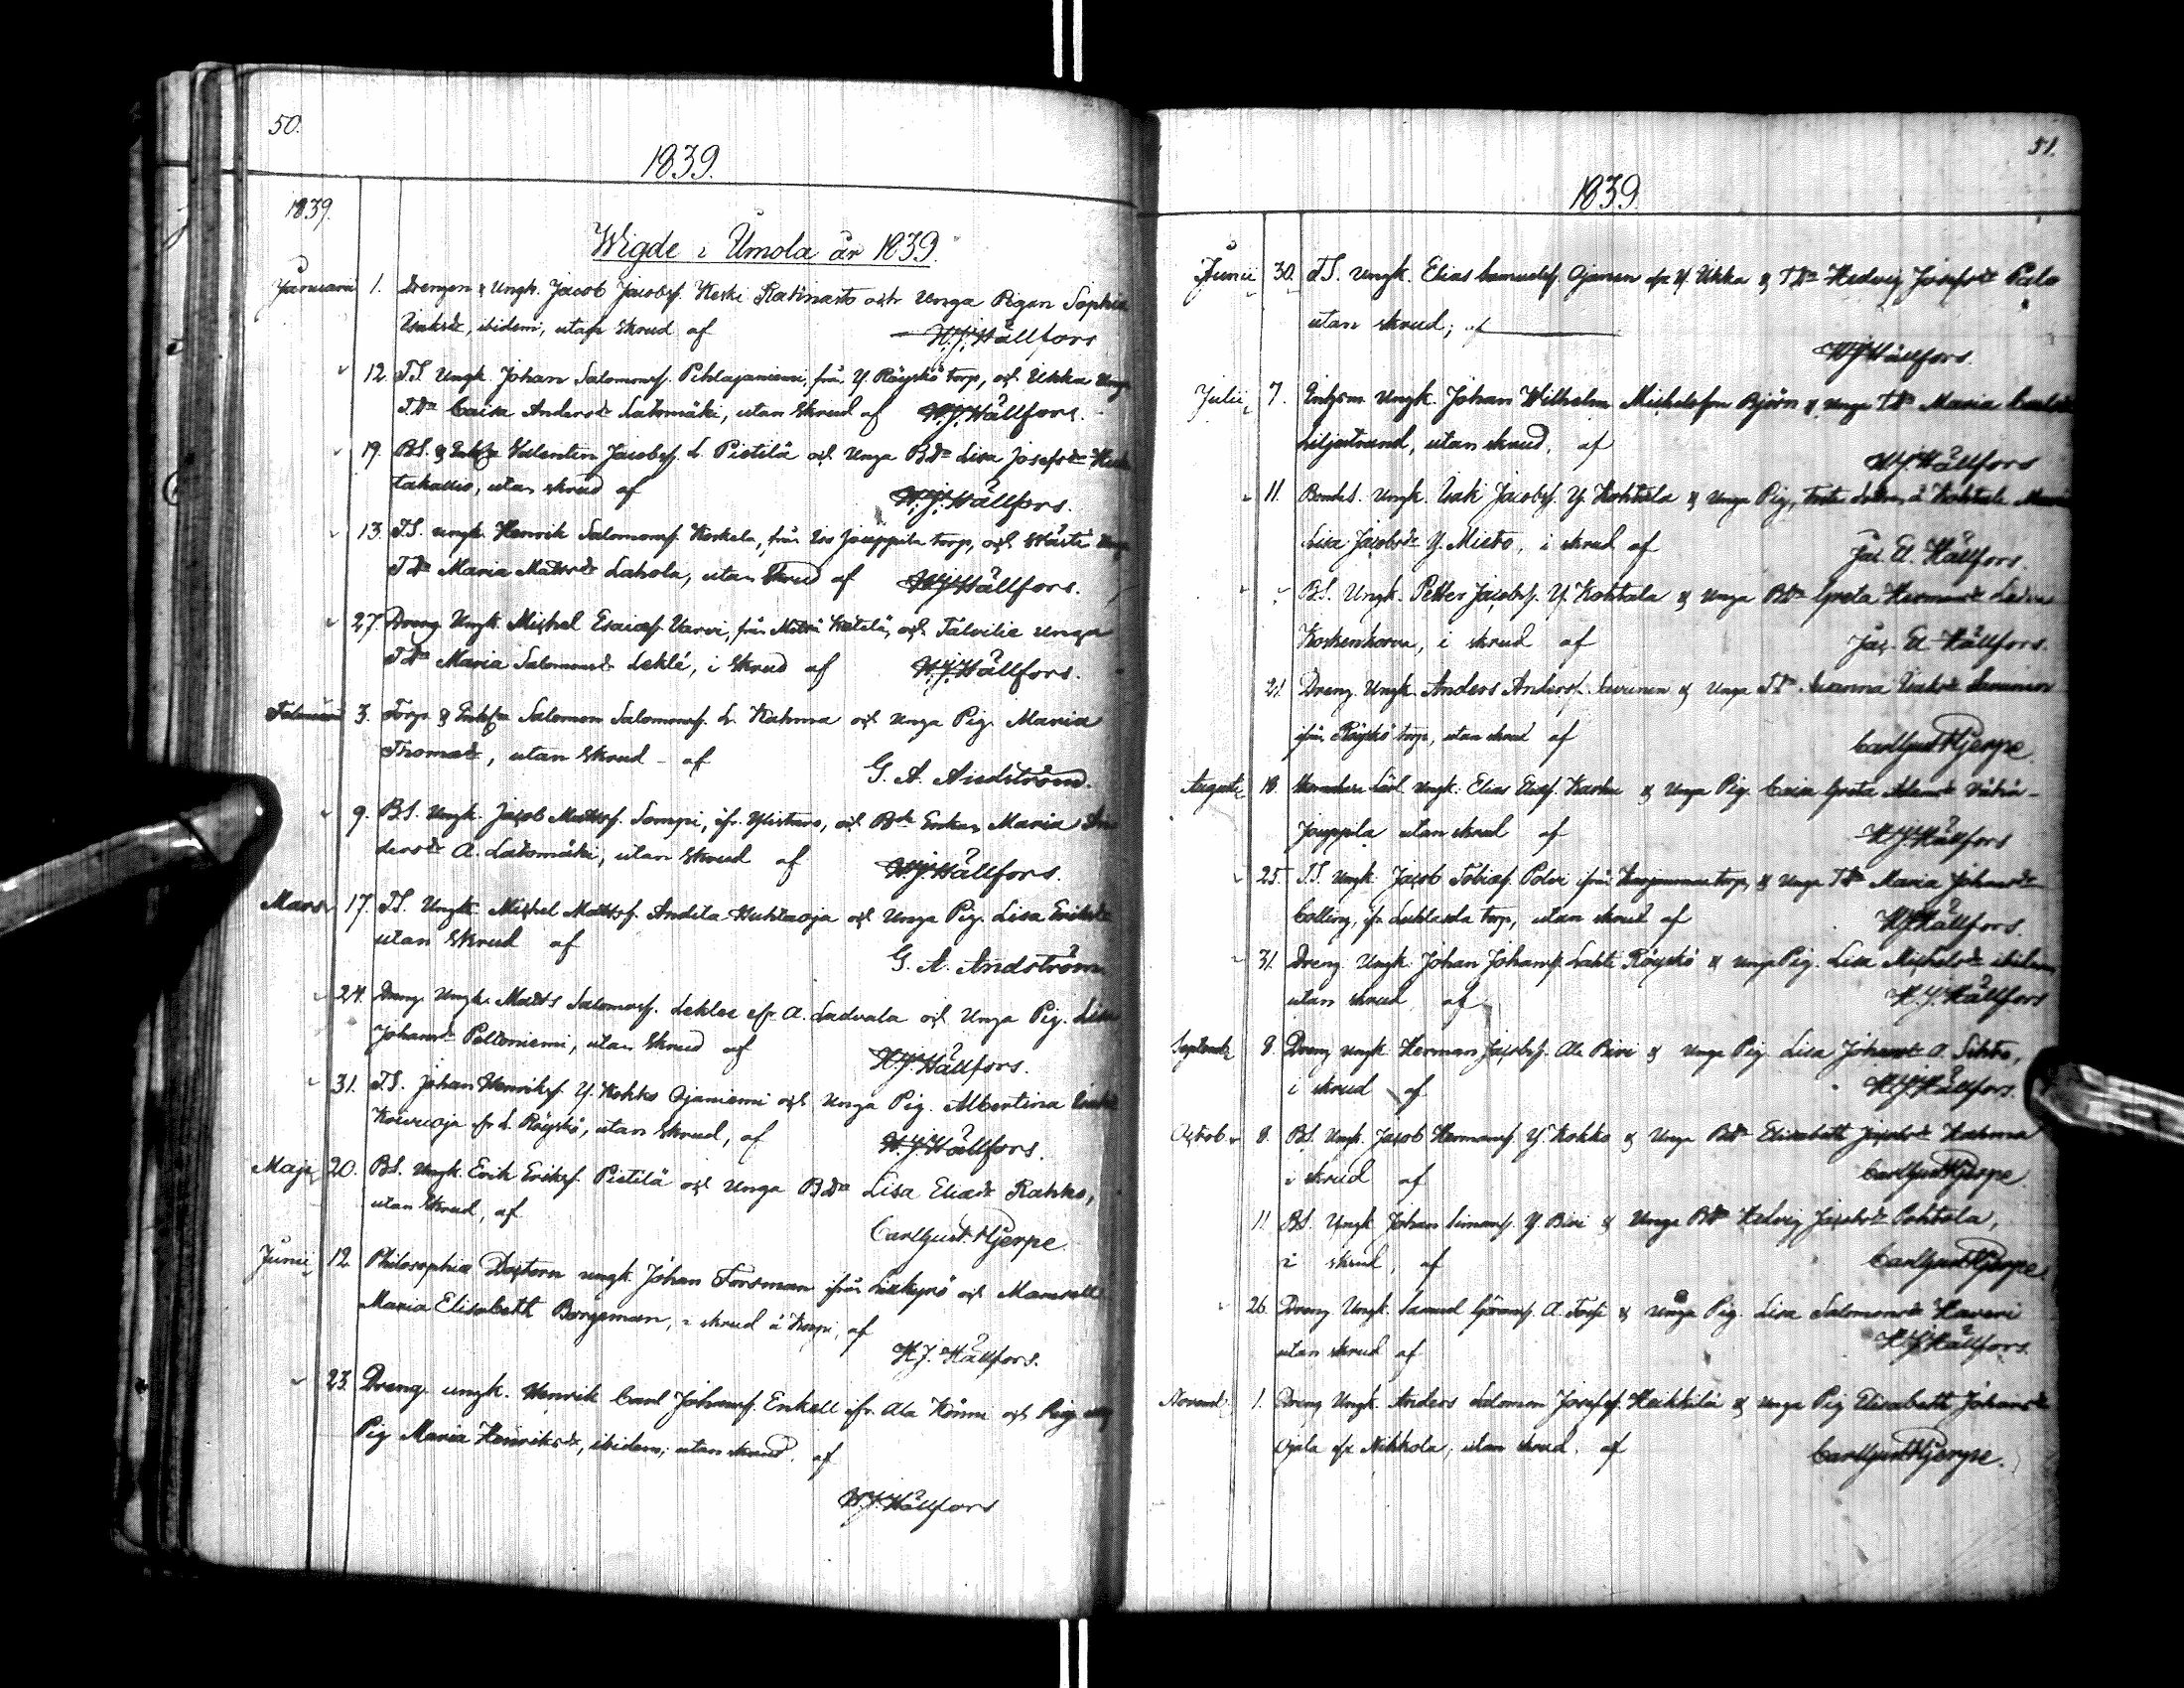 50.
1839.
1839.
Wigde i Ilmola år 1839.
Januarii 1. Drengen & Ungk. Jacob Jacobss. Keski Ratinaito och Unga Pigan Sophia
Isaksdr, ibidem, utan skrud af H.J. Hällfors
12. T.S. Ungk. Johan Salomonss. Pihlajaniemi, från Y. Röyskö torp, och Ukka Unga
T.Dr Caisa Andersdr Latomäki, utan skrud af H.J. Hällfors.
19. B.S. & Enkl. Valentin Jacobss. L. Pietilä och Unga B.Dr Lisa Josefsdr
takallio, utan skrud af H.J. Hällfors.
13. T.S. ungk. Henrik Salomonss. Korkela, från Iso Jouppila torp, och Unga
T.Dr Maria Mattsdr Lahola, utan Skrud af H.J. Hällfors.
27. Dreng Ungk. Michel Esaiæss. Varvi, från Kätilä, och Talvitie Unga
T.Dr Maria Salomonsdr Leklé, i Skrud af H.J. Hällfors.
Februarii 3. Torp. & Enkl. Salomon Salomonss. L. Kahma och Unga Pig. Maria
Thomasdr, utan skrud - af G. A. Andström.
9. B.S. Ungk. Jacob Mattss. Sompi, ifr. Ylistaro, och Bde Enkan Maria An
dersdr A. Latomäki, utan skrud af H.J. Hällfors.
Mars 17. T.S. Ungk. Michel Mattss. Andila Huhtaoja och Unga Pig. Lisa Eriksdr
utan skrud af G. A. Andström
24. Dreng Ungk. Matts Salomonss. Leklee ifr A. Ladvala och Unga Pig. Lisa
Johansdr Peltoniemi, utan skrud af H.J. Hällfors.
31. T.S. Johan Henrikss. Y. Kokko Ojaniemi och Unga Pig. Albertina
Koivuoja ifr L. Röyskö, utan skrud, af H.J. Hällfors.
Maji 20. B.S. Ungk. Erik Erikss. Pietilä och Unga B.Dr Lisa Eliædr Rahko,
utan skrud, af Carl Gust. Hjerpe
Junii 12 Philosophiæ Doctorn ungk. Johan Forsman ifrån Lillkyro och Mamsell
Maria Elisabeth Bergman, i skrud å Korpi, af
H.J. Hällfors.
23. Dreng. ungk. Henrik Carl Johanss. Enkell ifr. Ala Könni och
Pig Maria Henriksdr, ibidem, utan skrud. af
H.J. Hällfors
51.
1839.
Junii 30. T.S. Ungk. Elias Samuelss. Ojanen ifr Y. Ukka & T.Dr Hedvig Josefsdr Palo
utan skrud; af
H.J. Hällfors.
Julii 7. Ungk. Johan Wilhelm Michelsson Björn & Unga T.Dr Maria
Liljestrand, utan skrud, af H.J. Hällfors
11. Bonds. Ungk. Isak Jacobss. Y. Kohtala & Unga Pig,
Lisa Jacobsdr Y. Miesto, i skrud af Jac. El. Hällfors.
B.S. Ungk. Petter Jacobss. Y. Kohtala & Unga B.Dr Greta Hermansdr
Koskenkorva, i skrud af Jac. El Hällfors.
21 Dreng. Ungk. Anders Anderss. Luurinen & Unga T.Dr Susanna Isaksdr
ifrån Röyskö torp, utan skrud af Carl Gust Hjerpe
Augusti 18. Ungk. Elias Eliæss. Karhu & Unga Pig. Caisa Greta
Jouppila utan skrud af H.J. Hällfors
25. T.S. Ungk. Jacob Tobiæss. Polvi ifrån torp, & Unga T.Dr Maria Johansdr
Colling, ifr torp, utan skrud af H.J. Hällfors.
31. Dreng. Ungk. Johan Johanss. Lahti Röyskö & unga Pig. Lisa Michelsdr ibidem
utan skrud af H.J. Hällfors
Septembr 8. Dreng ungk. Herman Jacobss. Ala Piri & Unga Pig. Lisa Johansdr A. Sihto,
i skrud af H.J. Hällfors.
Octob. 8. B.S. Ungk. Jacob Hermanss. Y. Kokko & Unga B.Dr Elisabeth Jacobsdr Kahma
i skrud af Carl Gust Hjerpe
11. B.S. Ungk. Johan Simonss. Y. Piri & Unga B.Dr Hedvig Jacobsdr Pohtola,
i skrud, af Carl Gust Hjerpe
26. Dreng Ungk. Samuel Göranss. A. Torsi & Unga Pig. Lisa Salomonsdr Haveri
utan skrud af H.J. Hällfors.
Novembr 1. Dreng Ungk. Anders Salomon Josefss. Heikkilä & Unga Pig Elisabeth Johansdr
Ojala ifr Nikkola; utan skrud. af Carl Gust Hjerpe.